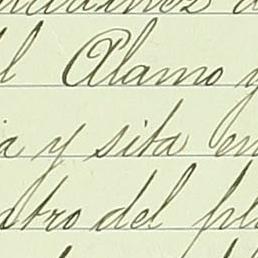 l Alamo y
a y sita en
atro del pl